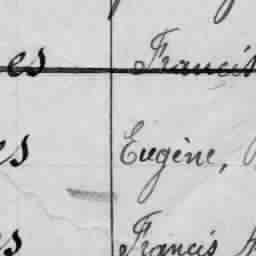 es Francis
es Eugène,
es Francis